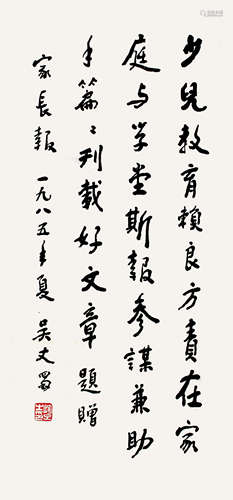 少兒教育賴良方責在家
庭与学堂斯報参謀兼助
手篇〻刊載好文章題贈
家長報一九八五年夏吴丈蜀